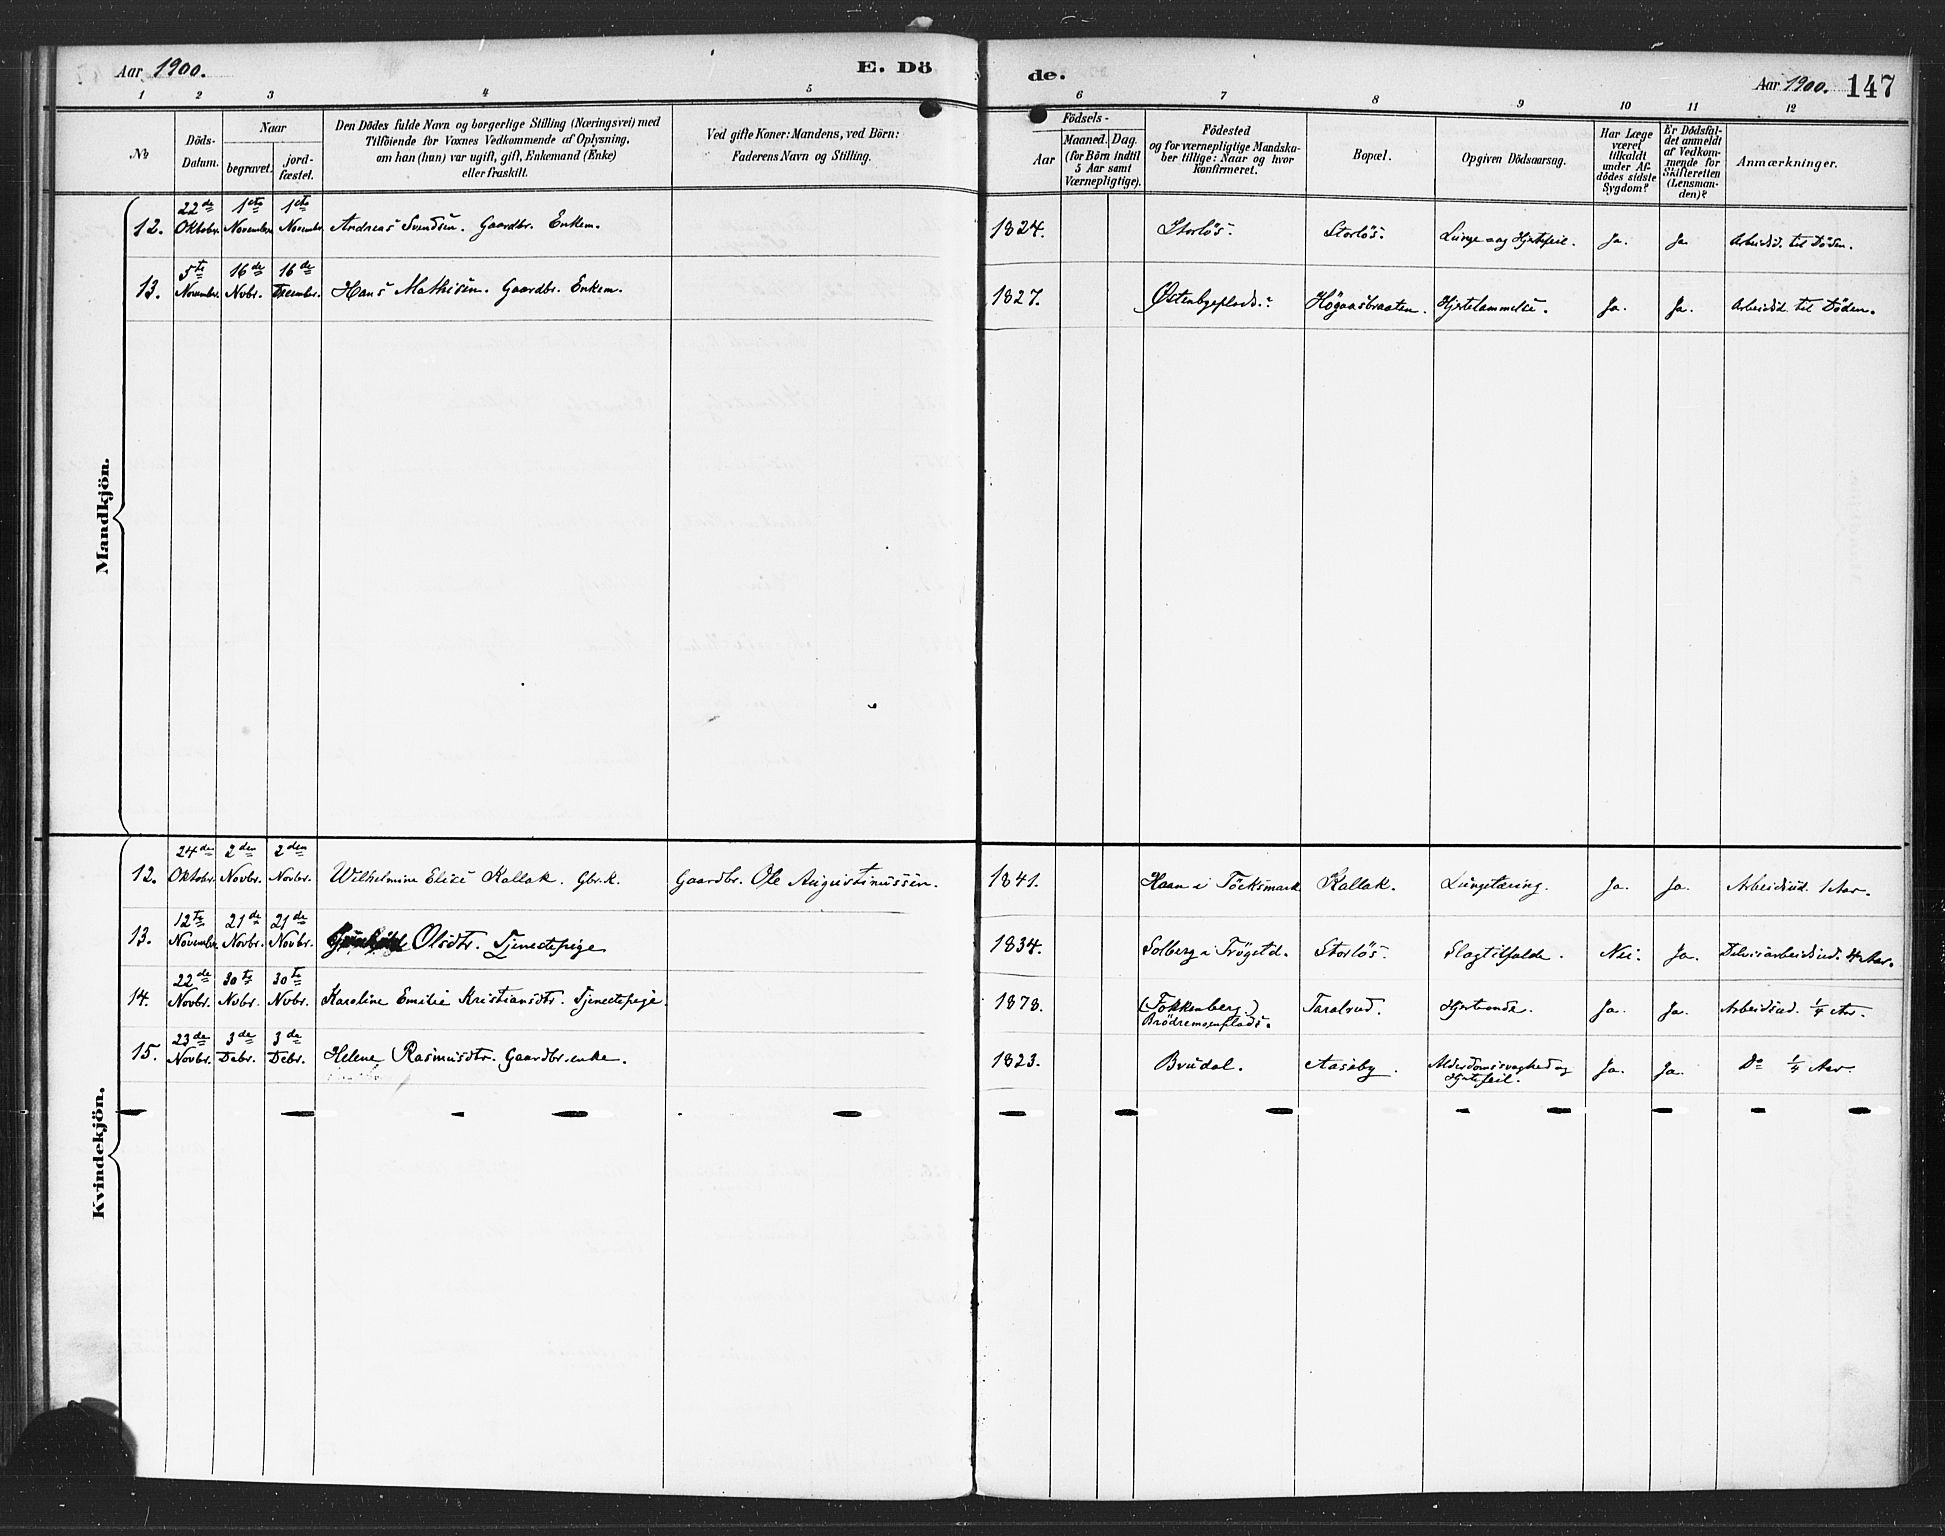 Aar 1900. E. Dö de. Aar 1900. 147
1 2 3 4 5 6 7 8 9 10 11 12
No
Döds-Datum.
Naar
begravet.
jord-fæstet.
Den Dödes fulde Navn og borgerlige Stilling (Næringsvei) med
Tilföiende for Voxnes Vedkommende af Oplysning,
om han (hun) var ugift, gift, Enkemand (Enke)
eller fraskilt.
Ved gifte Koner: Mandens, ved Börn:
Faderens Navn og Stilling.
Födsels-
Aar
Maaned. Dag.
(for Börn indtil
5 Aar samt
Værnepligtige).
Födested
og for værnepligtige Mandska-
ber tillige: Naar og hvor
konfirmeret.
Bopæl.
Opgiven Dödsaarsag.
Har Læge
været
tilkaldt
under Af-
dödes sidste
Sygdom?
Er Dödsfal-
det anmeldt
af Vedkom-
mende for
Skifteretten
(Lensman-
den)?
Anmærkninger.
Mandkjön.
22de 1ste 1ste
12. Oktober. November. Novembr. Andreas Svendsen. Gaardbr. Enkem. 1824. Storløs. Storløs. Lunge og Hjertefeil. Ja. Ja. Arbeidsd. til Døden.
5te 16de 16de
13. November. Nvbr. Decembr. Hans Mathisen. Gaardbr. Enkem. 1827. Østenbyeplads. Högaasbraaten. Hjertelammelse. Ja. Ja. Arbeidsd. til Døden.
Kvindekjön.
24de 2den 2den
12. Oktobr. Novbr. Novbr. Wilhelmine Elise Kallak. Gbr.k. Gaardbr. Ole Augustinussen. 1841. Haan i Töcksmark Kallak. Lungetæring. Ja. Ja. Arbeidsud. 1 Aar.
12te 21de 21de
13. November. Novbr. Novbr. Olsdtr. Tjenestepige 1834. Solberg i Trögstd. Storløs. Slagtilfælde. Nei. Ja. Delvis arbeidsud. 4 Aar.
22de 30te 30te
14. Novbr. Nvbr. Nvbr. Karoline Emilie Kristiansdtr. Tjenestepige. 1878. (Fokkenberg) Taralrud. Hjerteonde. Ja. Ja. Arbeidsud. 1/4 Ar.
Brödremosenplads.
23de 3de 3de
15. Novbr. Debr. Debr. Helene Rasmusdtr. Gaardbr.enke. 1823. Brudal. Aasøby. Alderdomssvaghed og Ja. Ja. Do 1/4 Aar.
Hjertefeil.